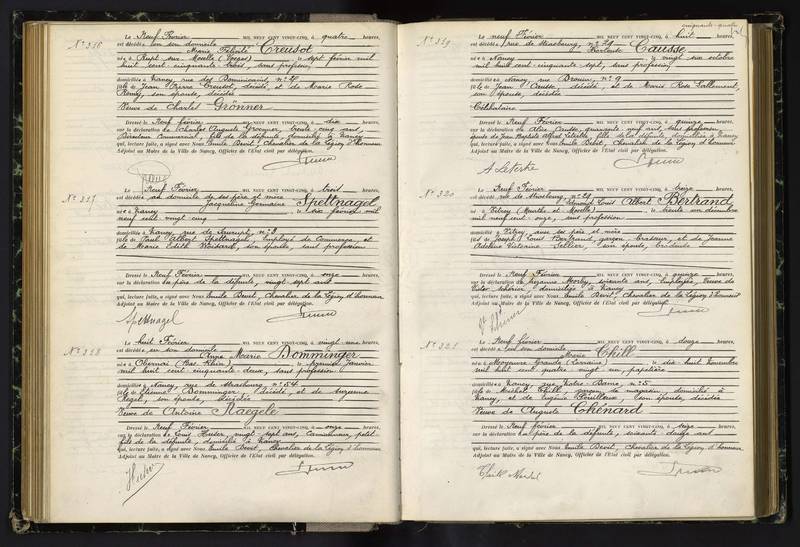 N° 316
Le Neuf Février MIL NEUF CENT VINGT-CINQ, à quatre heures,
est décédée en son domicile Marie Félicité Creusot
née à Rupt-sur-Moselle (Vosges) le sept février mil
huit cent cinquante-trois, sans profession
domiciliée à Nancy, rue des Dominicains, n°
fille de Jean Pierre Creusot, décédé, et de Marie Rose
Remy, son épouse, décédée
Veuve de Charles Grönner
Dressé le Neuf février MIL NEUF CENT VINGT-CINQ, à dix heures,
sur la déclaration de Charles Auguste Groenner, trente cinq ans,
Directeur Commercial, fils de la défunte, domicilié à Nancy
qui, lecture faite, a signé avec Nous Emile Devit, Chevalier de la Légion d'honneur
Adjoint au Maire de la Ville de Nancy, Officier de l'Etat civil par délégation.
N° 317
Le Neuf Février MIL NEUF CENT VINGT-CINQ, à trois heures,
est décédée au domicile de ses père et mère Jacqueline Germaine Spettnagel
née à Nancy le dix février mil
neuf cent vingt cinq
domiciliée à Nancy, rue de n° 8
fille de Paul Albert Spettnagel, employé de Commerce, et
de Marie Edith son épouse, sans profession
Dressé le Neuf Février MIL NEUF CENT VINGT-CINQ, à onze heures,
sur la déclaration du père de la défunte, vingt-sept ans
qui, lecture faite, a signé avec Nous Emile Devit, Chevalier de la Légion d'honneur
Adjoint au Maire de la Ville de Nancy, Officier de l'Etat civil par délégation.
Spettnagel
N° 318
Le huit Février MIL NEUF CENT VINGT-CINQ, à vingt une heures,
est décédée en son domicile Anne Marie Bomminger
née à Obernai (Bas-Rhin) le premier janvier
mil huit cent cinquante-deux, sans profession
domiciliée à Nancy, rue de Strasbourg n° 54
fille de Etienne Bomminger, décédé, et de Suzanne
Regel, son épouse, décédée
Veuve de Antoine Naegele
Dressé le Neuf Février MIL NEUF CENT VINGT-CINQ, à onze heures,
sur la déclaration de Louis Huder, vingt sept ans, Camionneur, petit
fils de la défunte, domicilié à Nancy
qui, lecture faite, a signé avec Nous Emile Devit, Chevalier de la Légion d'honneur
Adjoint au Maire de la Ville de Nancy, Officier de l'Etat civil par délégation.
Huder
cinquante-quatre
N° 319
Le neuf Février MIL NEUF CENT VINGT-CINQ, à huit heures,
est décédée rue de Strasbourg, n° 29 Causse
née à Nancy le vingt six octobre
mil huit cent cinquante sept, sans profession
domiciliée à Nancy, rue Drouin, n° 9
fille de Jean Causse, décédé, et de Marie Rose Lallement,
son épouse, décédée
Célibataire
Dressé le Neuf Février MIL NEUF CENT VINGT-CINQ, à quinze heures,
sur la déclaration de Alice Causse, quarante neuf ans, sans profession
qui, lecture faite, a signé avec Nous Emile Devit, Chevalier de la Légion d'honneur
Adjoint au Maire de la Ville de Nancy, Officier de l'Etat civil par délégation.
N° 320
Le Neuf Février MIL NEUF CENT VINGT-CINQ, à treize heures,
est décédé rue de Strasbourg, n° 29 Edmond Louis Albert Bertrand
né à Vitrey (Meurthe et Moselle) le trente un décembre
mil neuf cent onze, sans profession
domicilié à Vitrey, avec ses père et mère
fils de Joseph Louis Bertrand, garçon brasseur, et de Jeanne
Adeline Victorine Sellier, son épouse, brodeuse
Dressé le Neuf Février MIL NEUF CENT VINGT-CINQ, à quinze heures,
sur la déclaration de Suzanne soixante ans, Employée, Veuve de
Victor domiciliée à Nancy
qui, lecture faite, a signé avec Nous Emile Devit, Chevalier de la Légion d'honneur
Adjoint au Maire de la Ville de Nancy, Officier de l'Etat civil par délégation.
N° 321
Le Neuf février MIL NEUF CENT VINGT-CINQ, à douze heures,
est décédée en son domicile Marie Thill
née à Moyeuvre-Grande (Lorraine) le dix-huit novembre
mil huit cent quatre vingt un, papetière
domiciliée à Nancy, rue Notre-Dame, n° 5
fille de Michel Thill, garçon de magasin, domicilié à
Nancy, et de Eugénie Bouilleux, son épouse, décédée
Veuve de Auguste Chenard
Dressé le Neuf février MIL NEUF CENT VINGT-CINQ, à seize heures,
sur la déclaration du père de la défunte, soixante douze ans
qui, lecture faite, a signé avec Nous Emile Devit, Chevalier de la Légion d'honneur
Adjoint au Maire de la Ville de Nancy, Officier de l'Etat civil par délégation.
Thill Michel